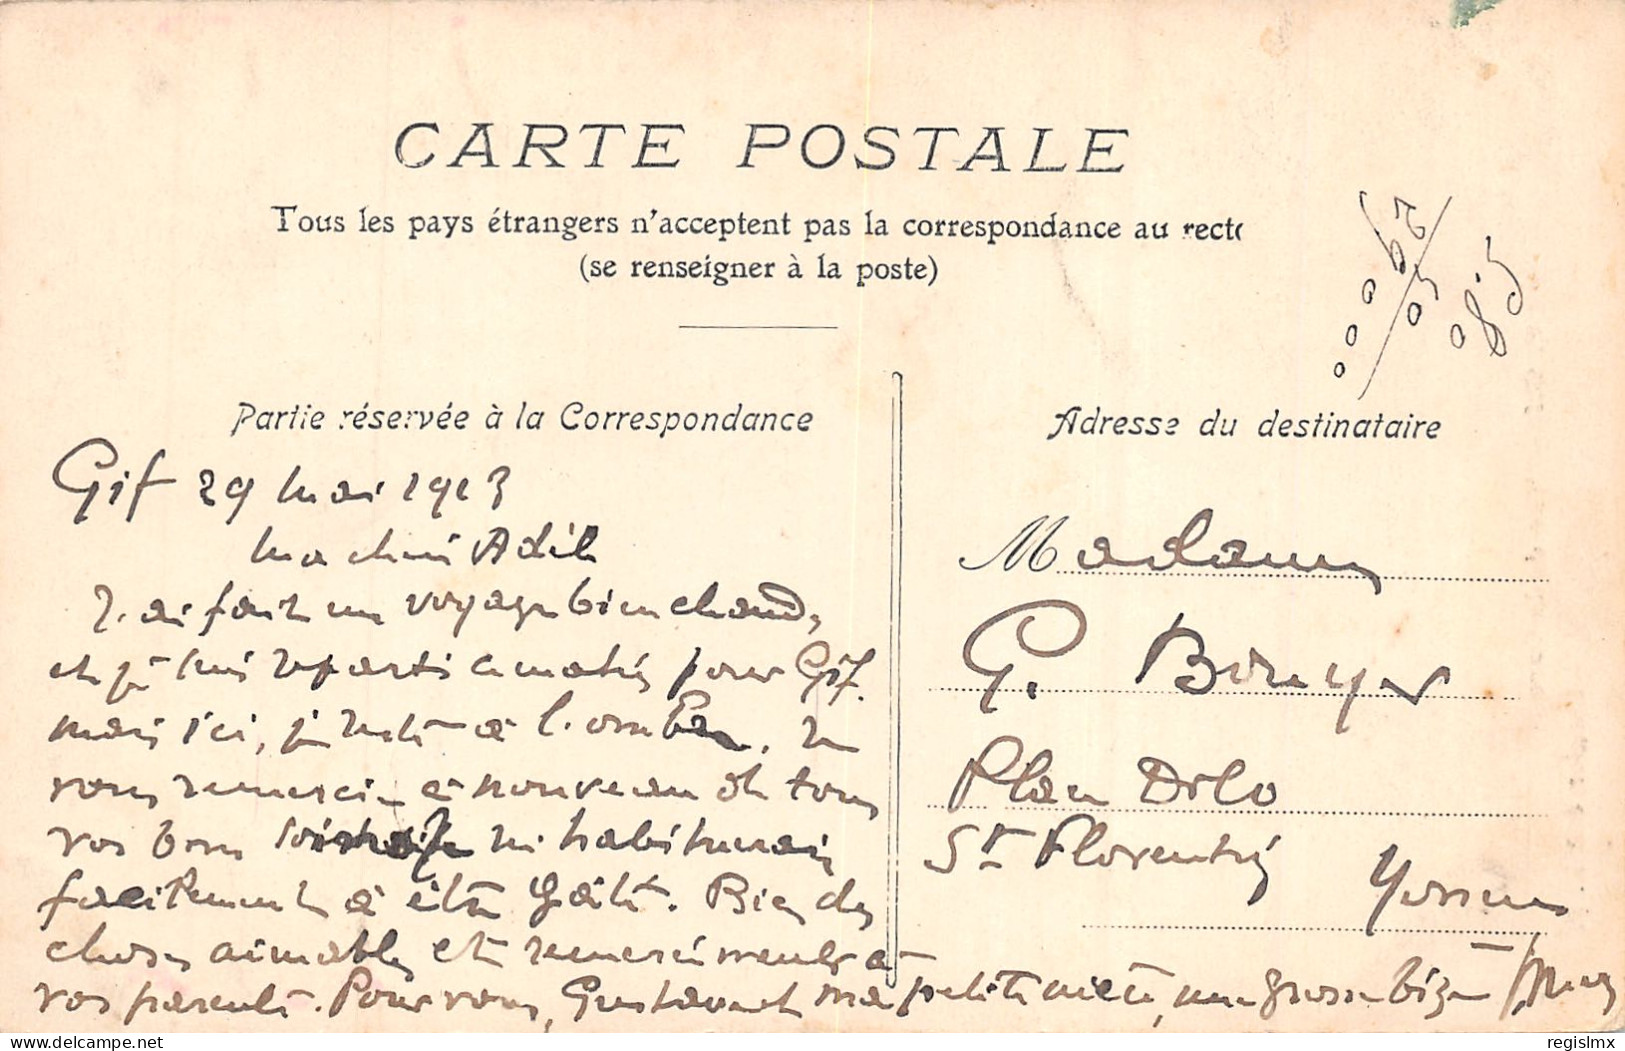 CARTE POSTALE
Tous les pays étrangers n'acceptent pas la correspondance au recto
(se renseigner à la poste)
Partie réservée à la Correspondance
Adresse du destinataire
Gif 29 mai 1913
Ma chère
J'ai fait un voyage bien chaud,
et je suis reparti ce matin pour Gif.
mais ici, je reste à l'ombre. Je
vous remercie à nouveau de tous
vos bons soins je m'habituerais
facilement à être gâté. Bien des
choses aimables et remerciements à
vos parents. Pour vous, Gustave et ma petite nièce, une grosse bise
Madame
G. Bouyer
Plan Dolo
St Florentin
Yonne
regislmx